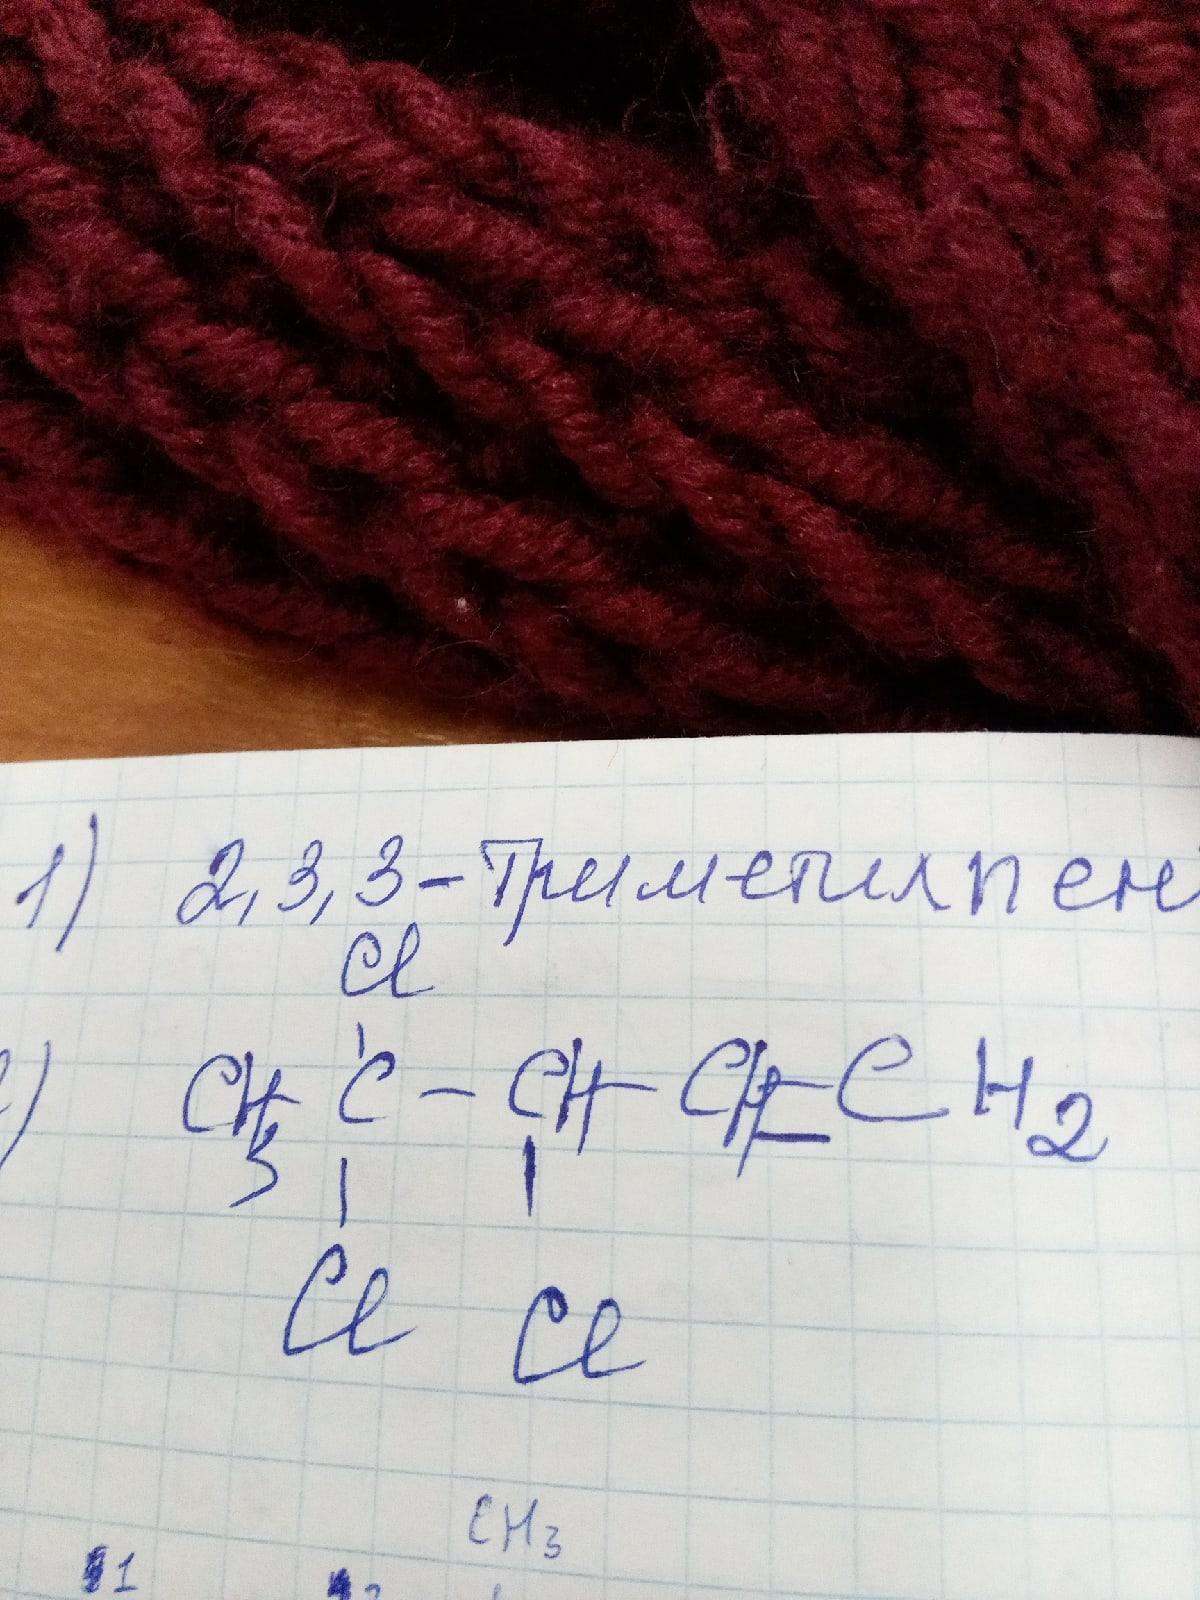 1) 2,3,3-Триметилпен
Cl
CH3 C - CH - CH = CH2
Cl Cl
CH3
1 2